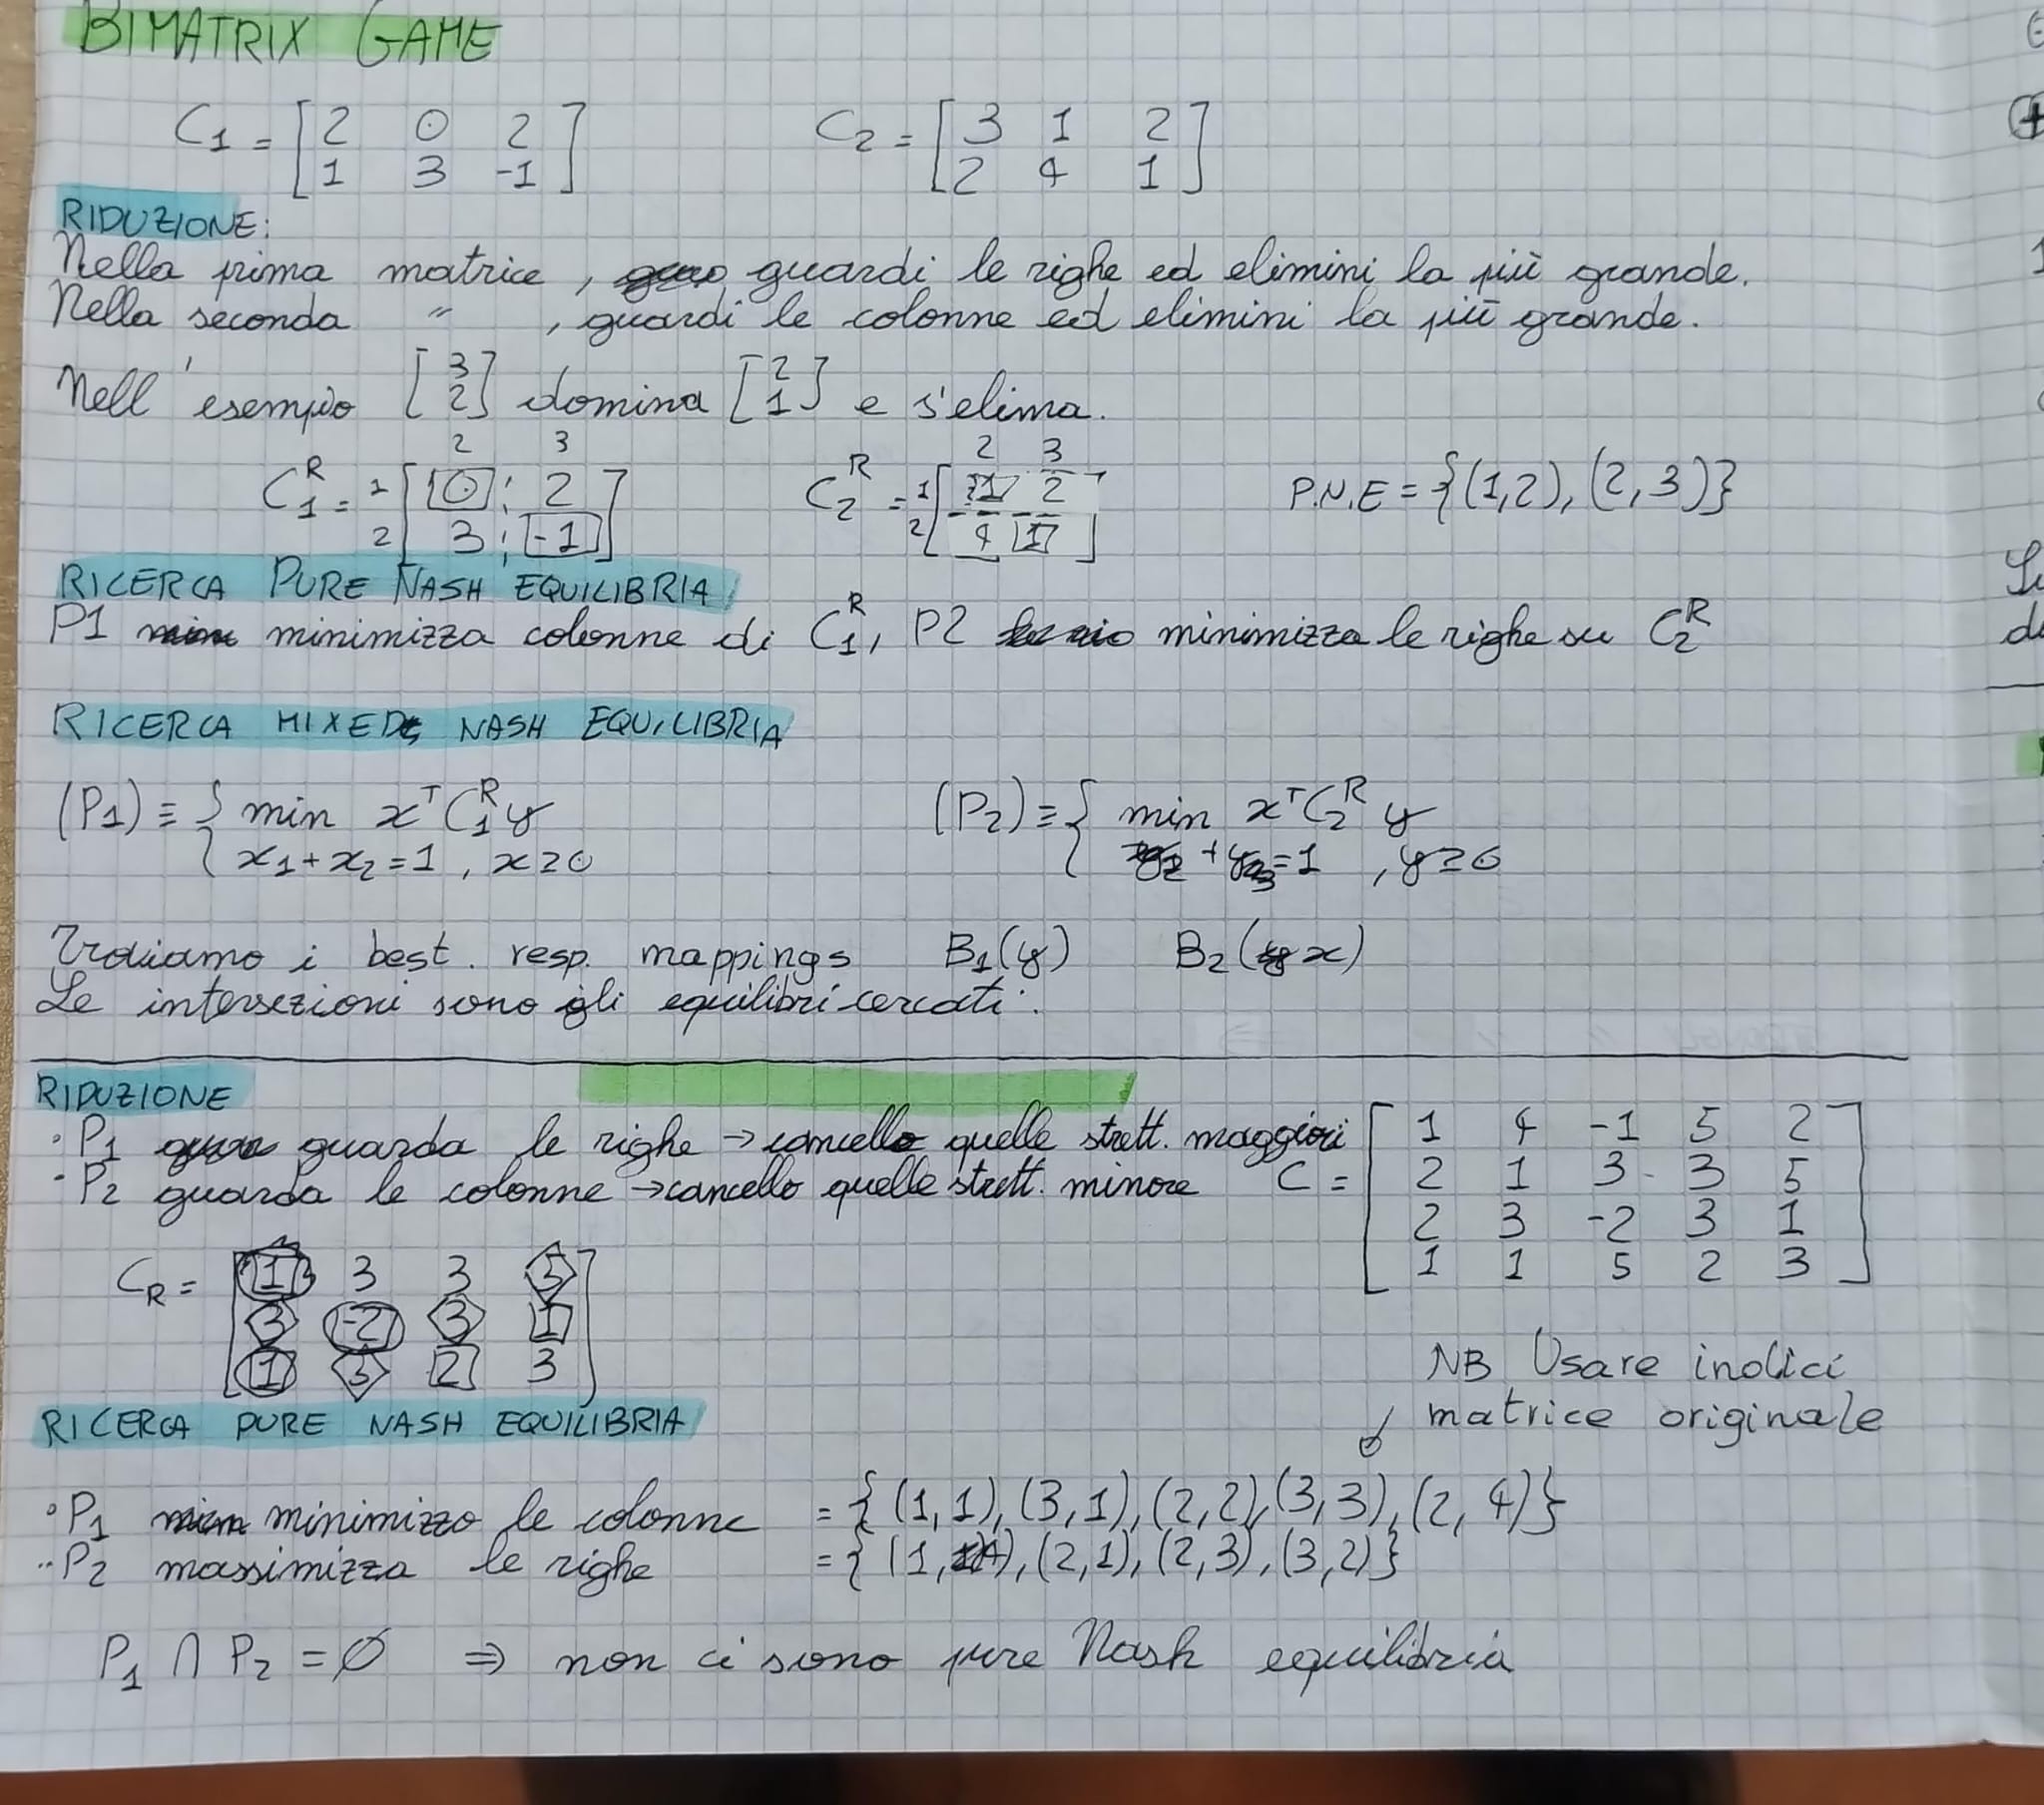 BIMATRIX GAME
C1 = [2 0 2
1 3 -1]
C2 = [3 1 2
2 4 1]
RIDUZIONE:
Nella prima matrice, guardi le righe ed elimini la più grande.
Nella seconda " , guardi le colonne ed elimini la più grande.
Nell'esempio [3 2] domina [2 1] e s'elima.
2 3
C1^R = 1 [0 2
2 3 -1]
2 3
C2^R = 1 [1 2
2 4 1]
P.N.E = {(1,2), (2,3)}
RICERCA PURE NASH EQUILIBRIA
P1 minimizza colonne di C1^R, P2 minimizza le righe su C2^R
RICERCA MIXED NASH EQUILIBRIA
(P1) ≡ { min x^T C1^R y
x1 + x2 = 1, x ≥ 0
(P2) ≡ { min x^T C2^R y
y2 + y3 = 1, y ≥ 0
Troviamo i best. resp. mappings B1(y) B2(x)
Le intersezioni sono gli equilibri cercati.
RIDUZIONE
· P1 guarda le righe → cancello quelle strett. maggiori
· P2 guarda le colonne → cancello quelle strett. minore
C = [1 4 -1 5 2
2 1 3 3 5
2 3 -2 3 1
1 1 5 2 3]
CR = [1 3 3 5
3 -2 3 1
1 5 2 3]
NB Usare indici
matrice originale
RICERCA PURE NASH EQUILIBRIA
· P1 minimizzo le colonne = {(1,1), (3,1), (2,2), (3,3), (2,4)}
· P2 massimizza le righe = {(1,4), (2,1), (2,3), (3,2)}
P1 ∩ P2 = ∅ ⇒ non ci sono pure Nash equilibria